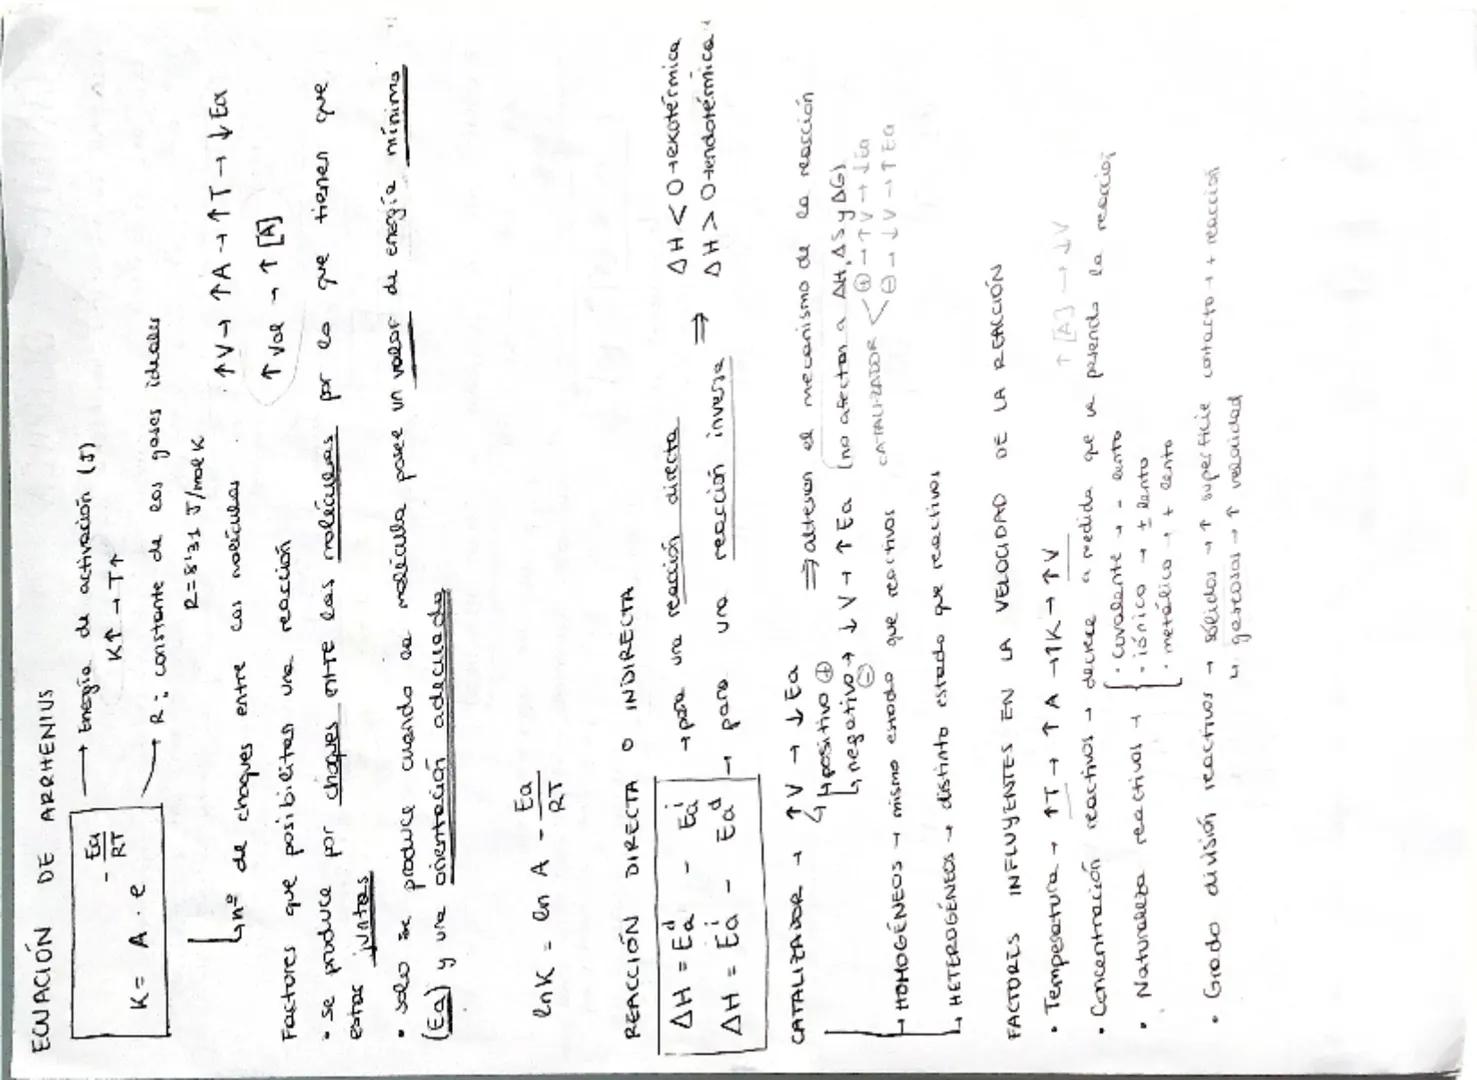 ECUACIÓN DE ARRHENIUS
K = A · e^(-Ea/RT) → Energía de activación (J)
K↑ → T↑
→ R: constante de los gases ideales
R = 8'31 J/mol K
↳ nº de choques entre las moléculas · ↑V → ↑A → ↑T → ↓Ea
Factores que posibilitan una reacción ↑ Vol → ↑ [A]
• Se produce por choques entre las moléculas por lo que tienen que
estar juntas
• Solo se produce cuando la molécula posee un valor de energía mínima
(Ea) y una orientación adecuada
lnK = ln A - Ea/RT
REACCIÓN DIRECTA O INDIRECTA
ΔH = Ea^d - Ea^i → para una reacción directa ΔH < 0 → exotérmica
ΔH = Ea^i - Ea^d → para una reacción inversa ⇒ ΔH > 0 → endotérmica
CATALIZADOR → ↑V → ↓Ea ⇒ alteran el mecanismo de la reacción
↳ positivo ⊕
↳ negativo → ↓V → ↑Ea (no afectan a ΔH, ΔS y ΔG)
⊖
CATALIZADOR < ⊕ → ↑V → ↓Ea
⊖ → ↓V → ↑Ea
↳ HOMOGÉNEOS → mismo estado que reactivos
↳ HETEROGÉNEOS → distinto estado que reactivos
FACTORES INFLUYENTES EN LA VELOCIDAD DE LA REACCIÓN
• Temperatura → ↑T → ↑A → ↑K → ↑V ↑[A] → ↓V
• Concentración reactivos → decrece a medida que va pasando la reacción
• Naturaleza reactivos → · covalente → - lento
· iónico → ± lento
· metálico → + lento
• Grado división reactivos → sólidos → ↑ superficie contacto → + reacción
↳ gaseosos → ↑ velocidad